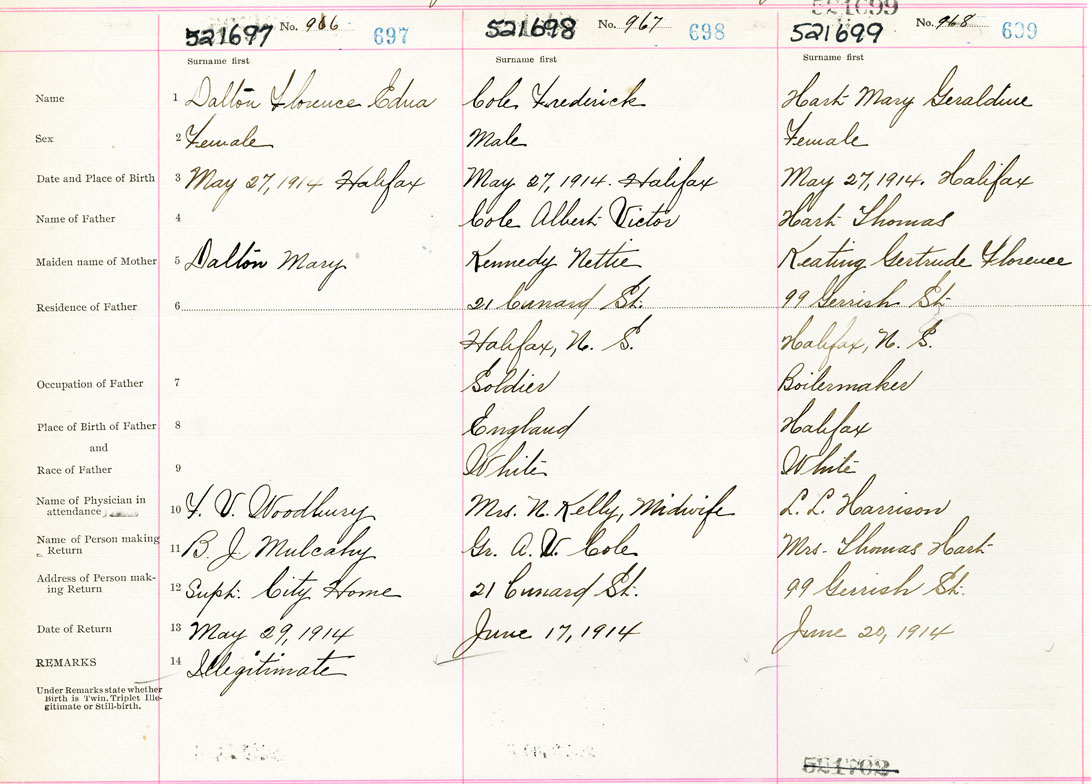 521699
521697 No. 966 697
521698 No. 967 698
521699 No. 968 699
Surname first Surname first Surname first
Name 1 Dalton Florence Edna Cole Frederick Hart Mary Geraldine
Sex 2 Female Male Female
Date and Place of Birth 3 May 27, 1914 Halifax May 27, 1914. Halifax May 27, 1914. Halifax
Name of Father 4 Cole Albert Victor Hart Thomas
Maiden name of Mother 5 Dalton Mary Kennedy Nettie Keating Gertrude Florence
Residence of Father 6 21 Cunard St. 99 Gerrish St.
Halifax, N. S. Halifax, N. S.
Occupation of Father 7 Soldier Boilermaker
Place of Birth of Father 8 England Halifax
and
Race of Father 9 White White
Name of Physician in
attendance 10 F. V. Woodbury Mrs. N. Kelly, Midwife L. L. Harrison
Name of Person making
Return 11 B. J. Mulcahy Gr. A. V. Cole Mrs. Thomas Hart
Address of Person mak-
ing Return 12 Supt. City Home 21 Cunard St. 99 Gerrish St.
Date of Return 13 May 29, 1914 June 17, 1914 June 20, 1914
REMARKS 14 Illegitimate
Under Remarks state whether
Birth is Twin, Triplet Ille-
gitimate or Still-birth.
521702